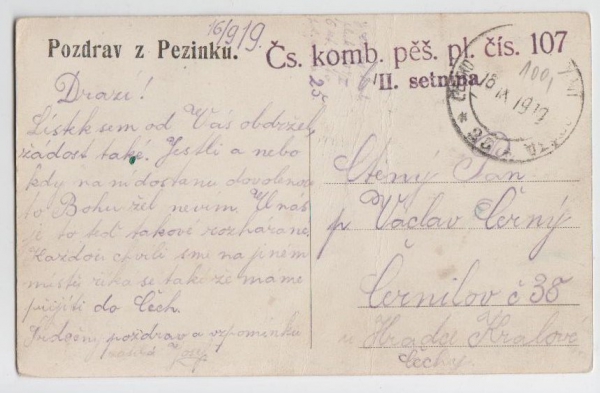 16/9 19.
Pozdrav z Pezinku.
Čs. komb. pěš. pl. čís. 107
II. setnina
25
16 IX 1919
Drazí!
Lístek sem od Vás obdržel
žádost také. Jestli a nebo
kdy na ni dostanu dovolenou
to Bohu žel nevim. U nás
je to teď takové rozhárané
Každou chvíli smi na jiném
místě říka se také že mame
přijíti do Čech.
Srdečný pozdrav a vzpomínku
Ctěný Pan
p Václav Černý
Černilov č 38
u Hradce Králové
Čechy